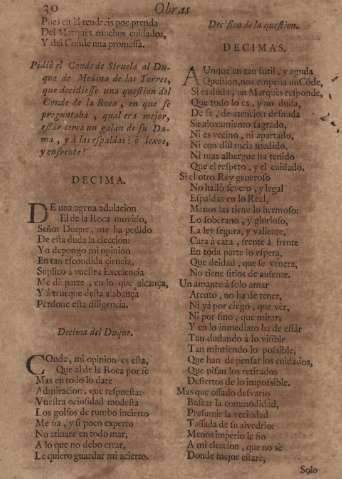 30 Obras
Pues en Mendrais por prenda
Del Marquès muchos cuidados,
Y del Conde una promessa.
Pidiò el Conde de Siruela al Du-
que de Medina de las Torres,
que decidiesse una question del
Conde de la Roca, en que se
preguntaba, qual era mejor,
estàr cerca un galàn de su Da-
ma, y à las espaldas; ò lexos,
y enfrente?
DECIMA.
DE una agena adulacion
El de la Roca movido,
Señor Duque, me ha pedido
De esta duda la eleccion:
Yo depongo mi opinion
En tan escondida ciencia,
Suplico à vuestra Excelencia
Me dè parte, en lo que alcança,
Y à trueque desta alabança
Perdone esta diligencia.
Decima del Duque.
COnde, mi opinion es esta,
Que al de la Roca por sè
Mas en todo lo darè
Admiracion, que respuesta:
Vuestra ociosidad modesta
Los golfos de rumbo incierto
Me fia, y si poco experto
No atinare en todo mar,
A lo que no debo errar,
Le quiero guardar mi acierto.
Decision de la question.
DECIMAS.
AUnque en tan sutil, y aguda
Question, nos empeña un Cõde,
Si es duda, un Marquès responde,
Que todo lo es, y no duda,
De su atencion desnuda
Su alojamiento sagrado,
Ni es vecino, ni apartado,
Ni con distancia medido,
Ni mas albergue ha tenido
Que el respeto, y el cuidado.
Si el otro Rey generoso
No hallò severo, y legal
Espaldas en lo Real,
Menos las tiene lo hermoso:
Lo soberano, y glorioso,
La ley segura, y valiente,
Cara à cara, frente à frente
En toda parte lo espera,
Que deidad, que se venera,
No tiene sitios de ausente.
Un amante à solo amar
Atento, no ha de tener,
Ni yà por ciego, que vèr,
Ni por fino, que mirar,
Y en lo inmediato ha de estàr
Tan dudando à lo visible
Tan mintiendo lo possible,
Que han de pensar los cuidados,
Que pisan los retirados
Desiertos de lo impossible.
Mas que ossado desvario
Buscar la comodidad,
Presumir la vecindad
Tassada de su alvedrio:
Menos imperio le fio
A mi eleccion, que no sè
Donde mejor estarè,
Solo